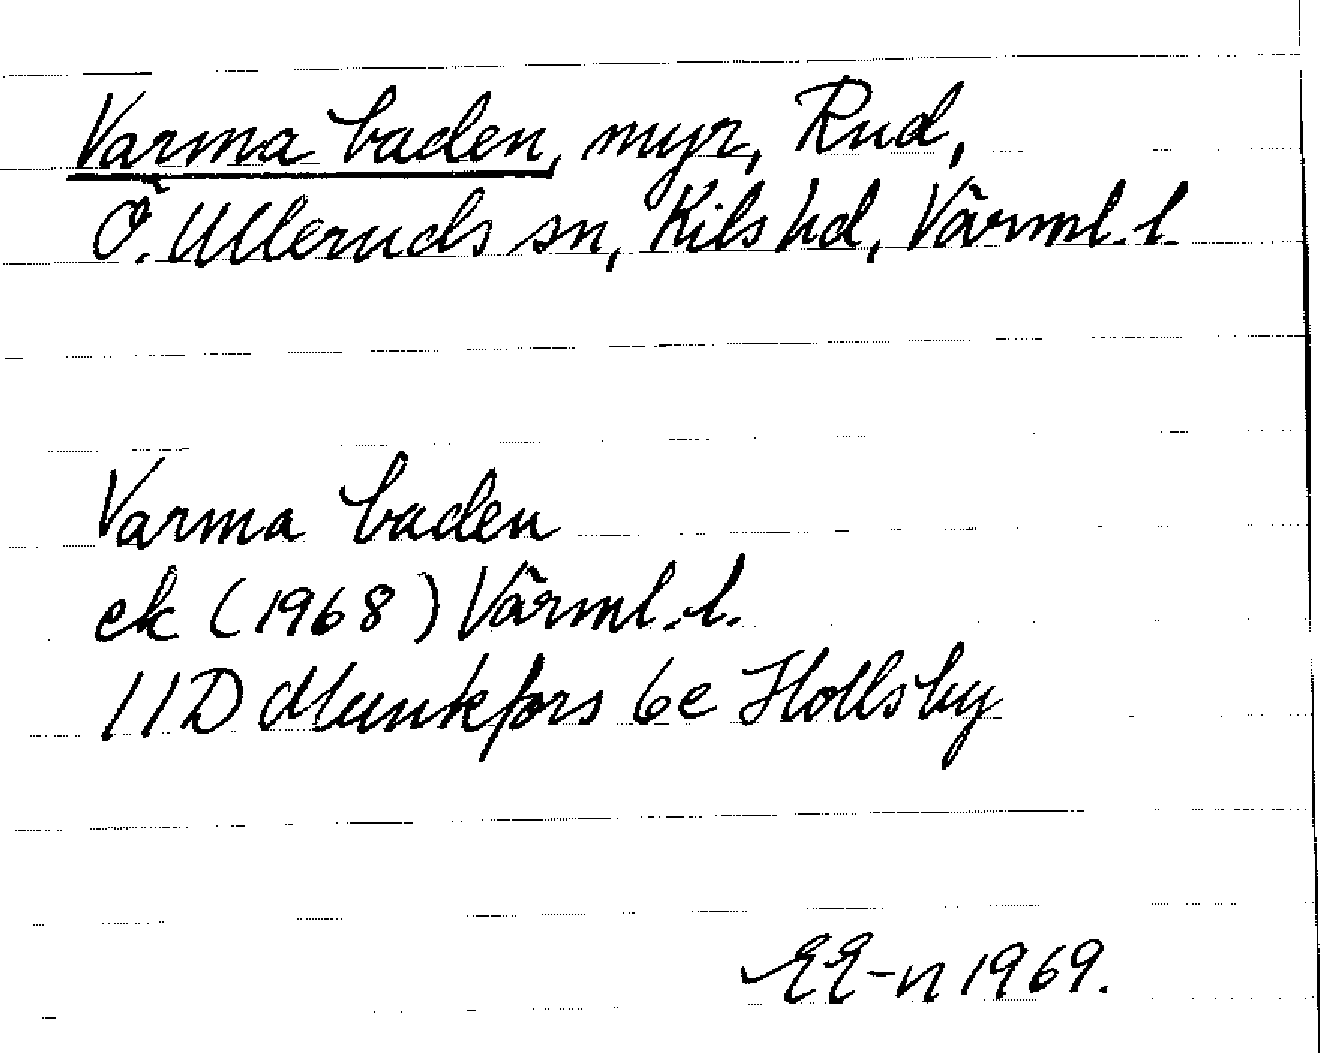 Varma baden, myr, Rud,
Ö. Ulleruds sn, Kils hd, Värml. l.
Varma baden
ek (1968) Värml. l.
11D Munkfors 6e Hollsby
EE-n 1969.